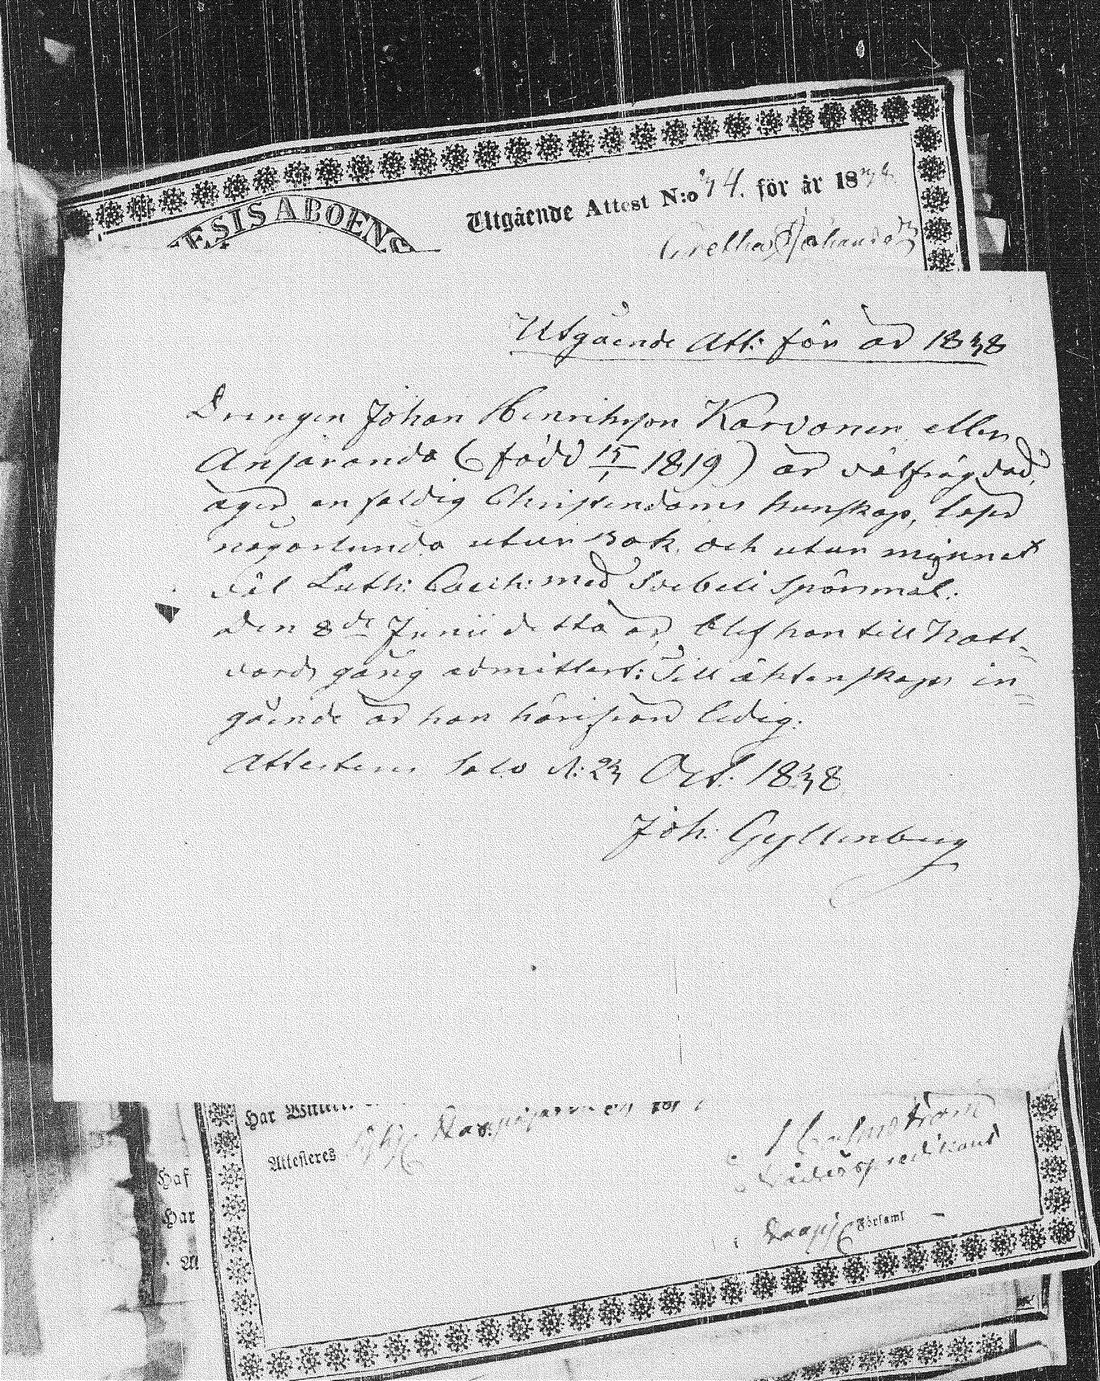 ESIS ABOENS
Utgående Attest N:o 74. för år 18
Gretha Johansd:r
Utgående Att: för år 1838
Drengen Johan Henriksson Karvonen eller
Ansaranda (född 15/1 1819) är välfrägdad,
äger enfaldig Christendoms kunskap, läser
någorlunda utur Bok, och utur minnet
väl Luth: Cech: med Svebelii Spörsmål.
Den 8de Junii detta år blef han till Natt-
vards gång admitterd: Till äktenskaps in-
gående är han härifrån ledig.
Attesteras Salo d: 23 Oct: 1838
Joh: Gyllenberg
Har
Attesteras
Holmström
Församl
Haf
Har